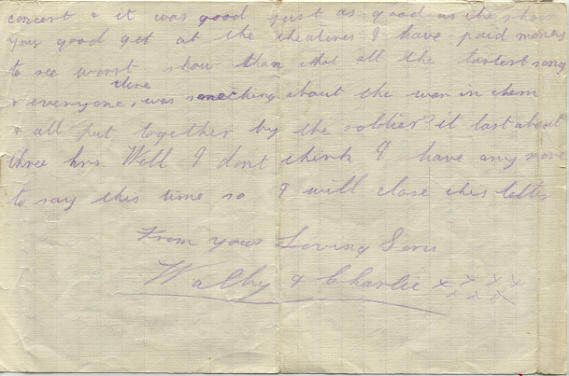 concert & it was good just as good as the show
you good get at the theatres I have paid money
to see worst show than that all the lastest song
& everyone there was something about the war in them
& all put together by the soldiers it last about
three hrs. Well I dont think I have any more
to say this time so I will close this letter
From your Loving Sons
Wally & Charlie x x x x
x x x